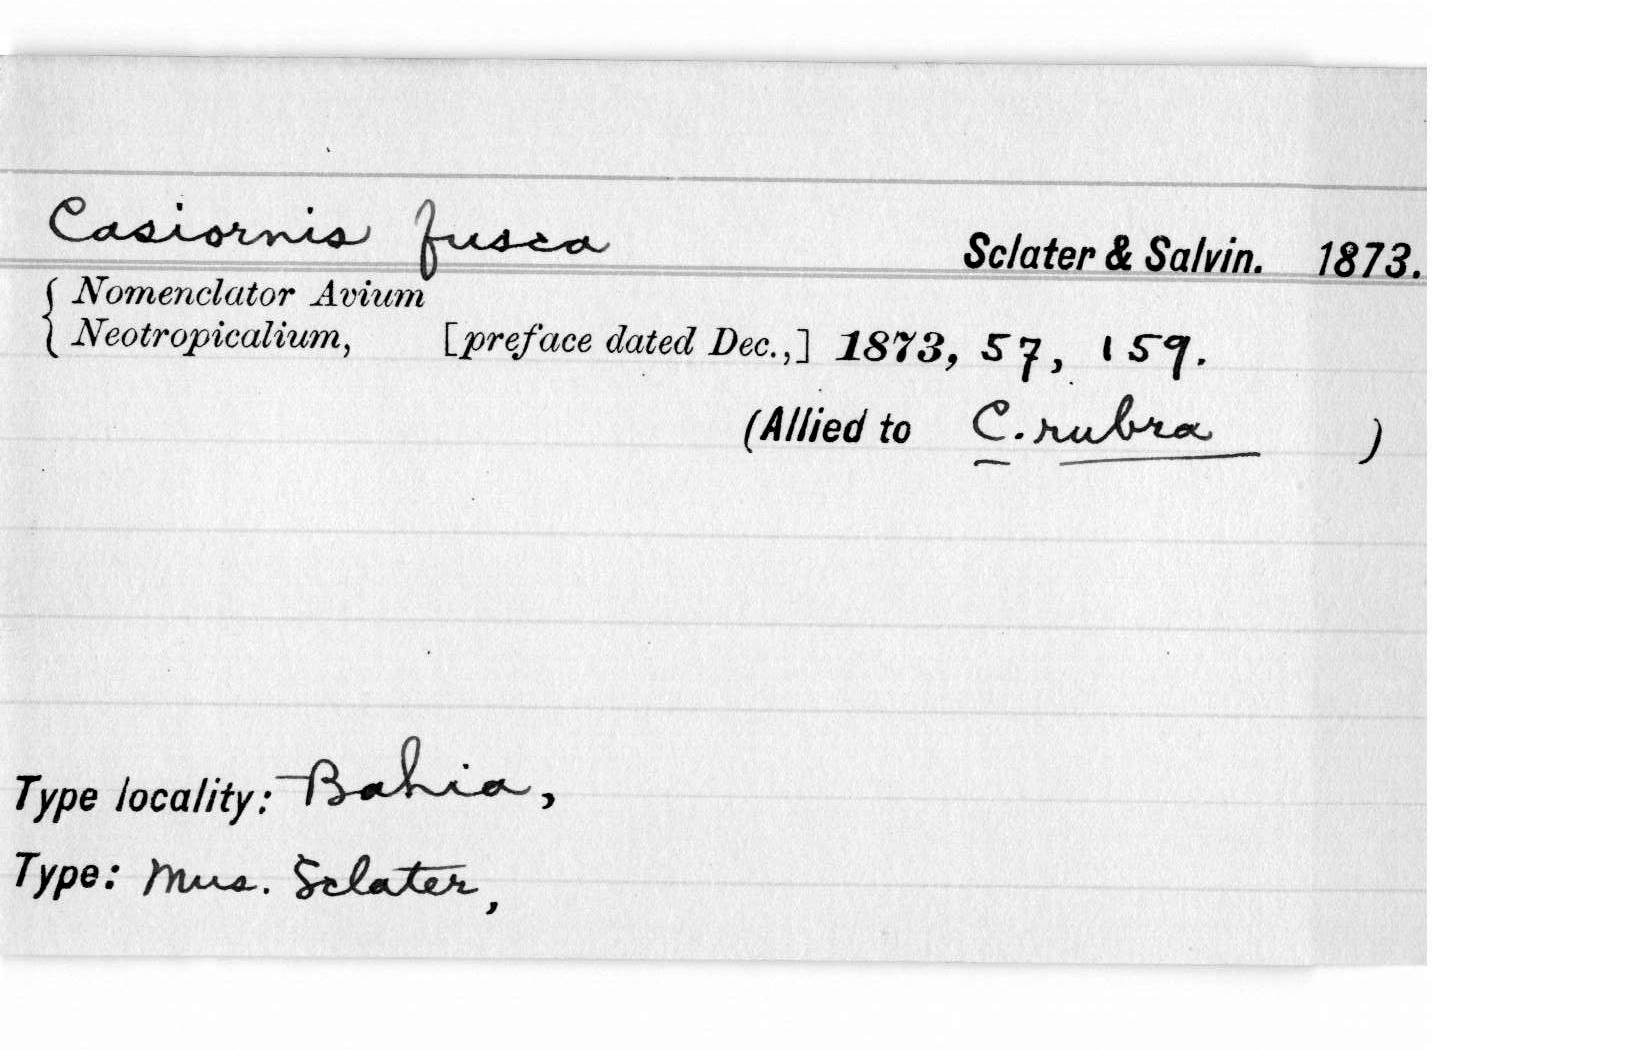 Casiornis fusca Sclater & Salvin. 1873.
{ Nomenclator Avium
Neotropicalium, [preface dated Dec.,] 1873, 57, 159.
(Allied to C. rubra )
Type locality: Bahia,
Type: Mus. Sclater,